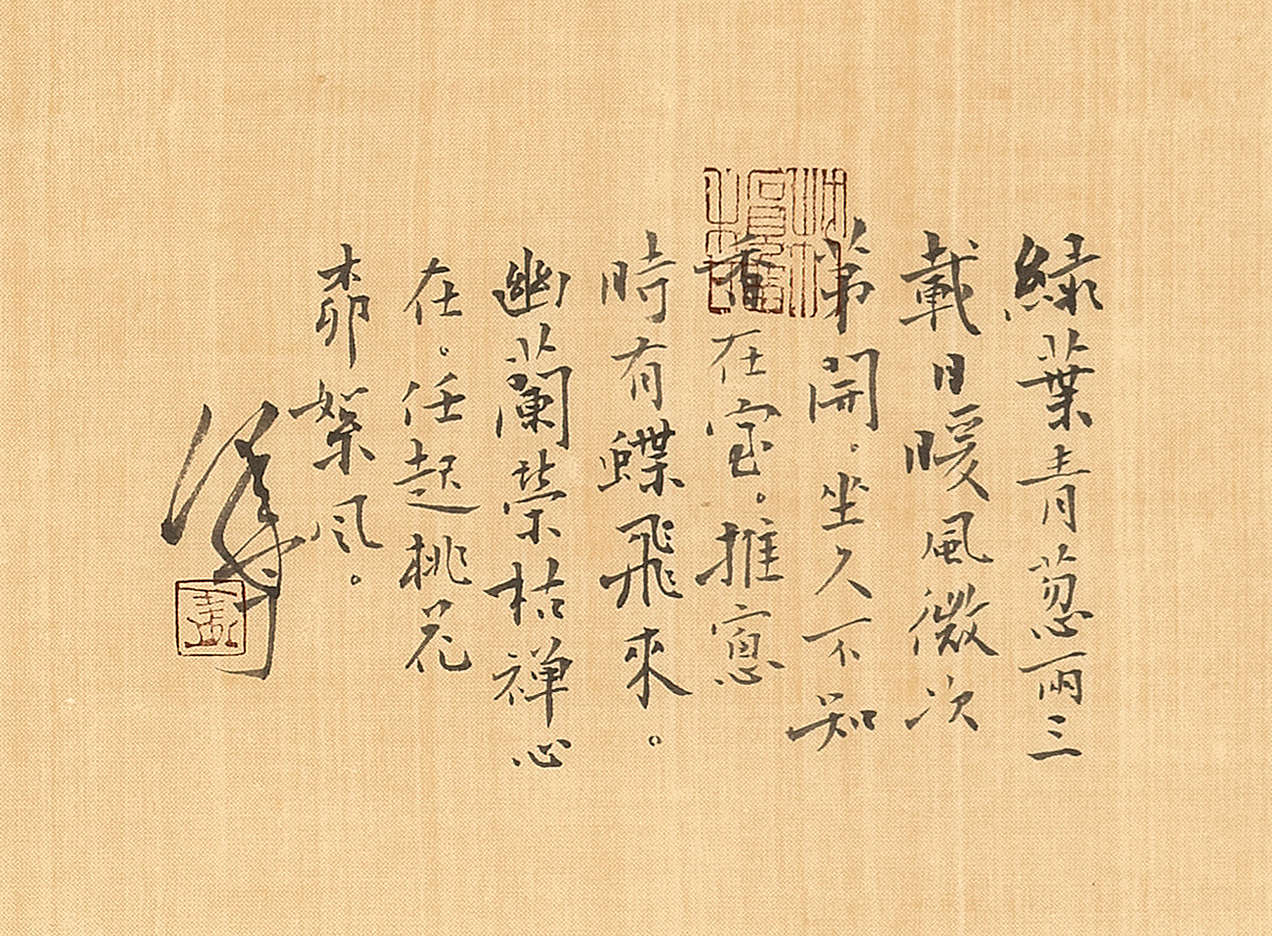 綠葉青葱兩三
載日暖風微次
第開。坐久不知
香在室。推窻
時有蝶飛來。
幽蘭榮枯禪心
在。任起桃花
絮风。